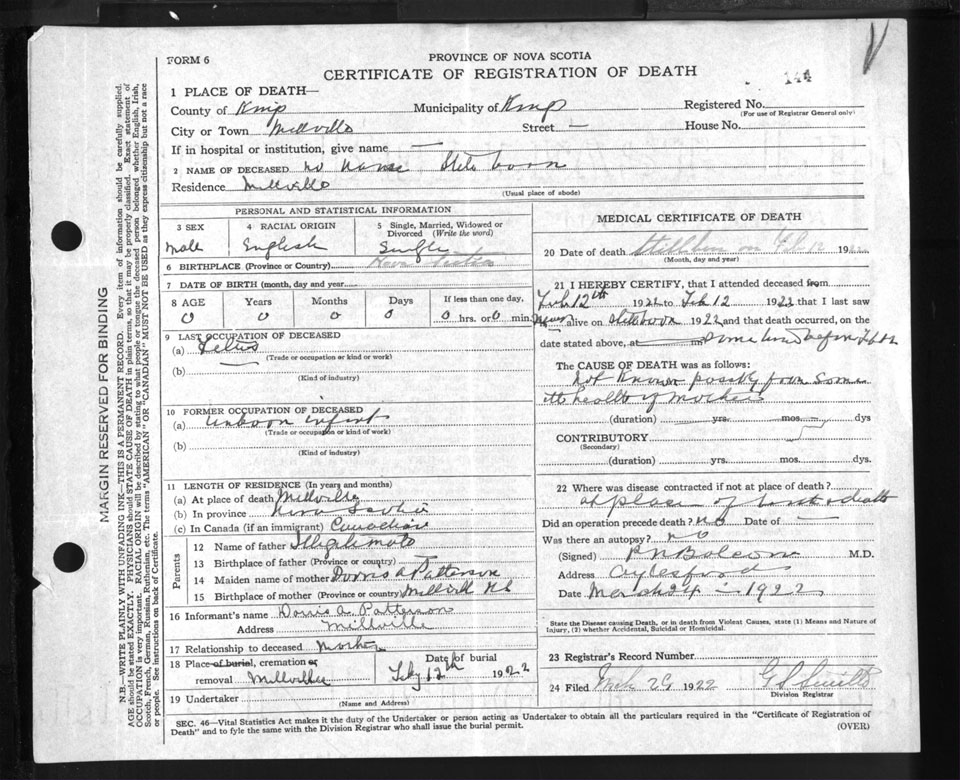 FORM 6
PROVINCE OF NOVA SCOTIA
CERTIFICATE OF REGISTRATION OF DEATH
144
1 PLACE OF DEATH—
County of Kings Municipality of Kings Registered No.
(For use of Registrar General only)
City or Town Millville Street — House No.
If in hospital or institution, give name —
2 NAME OF DECEASED no name Still born
Residence Millville
(Usual place of abode)
PERSONAL AND STATISTICAL INFORMATION
3 SEX 4 RACIAL ORIGIN 5 Single, Married, Widowed or Divorced (Write the word)
Male English Single
6 BIRTHPLACE (Province or Country) Nova Scotia
7 DATE OF BIRTH (month, day and year)
8 AGE Years Months Days If less than one day,
0 0 0 0 0 hrs. or 0 min.
9 LAST OCCUPATION OF DECEASED
(a)
(Trade or occupation or kind of work)
(b)
(Kind of industry)
10 FORMER OCCUPATION OF DECEASED
(a) Unborn Infant
(Trade or occupation or kind of work)
(b)
(Kind of industry)
11 LENGTH OF RESIDENCE (In years and months)
(a) At place of death Millville
(b) In province Nova Scotia
(c) In Canada (if an immigrant) Canadian
Parents
12 Name of father Illegitimate
13 Birthplace of father (Province or country)
14 Maiden name of mother Dorris A Patterson
15 Birthplace of mother (Province or country) Millvill NS
16 Informant's name Dorris A. Patterson
Address Millville
17 Relationship to deceased Mother
18 Place of burial, cremation or Date of burial
removal Millville Feby 12th 1922
19 Undertaker
(Name and Address)
MEDICAL CERTIFICATE OF DEATH
20 Date of death Stillborn on Feb 12 1922
(Month, day and year)
21 I HEREBY CERTIFY, that I attended deceased from
Feb 12th 1922 to Feb 12 1922 that I last saw
never alive on stillborn 1922 and that death occurred, on
date stated above, at m some time before birth
The CAUSE OF DEATH was as follows:
not known possibly from some
ill health of mother
(duration) yrs. mos. dys
CONTRIBUTORY
(Secondary)
(duration) yrs. mos. dys.
22 Where was disease contracted if not at place of death?
at place of birth & death
Did an operation precede death? no Date of —
Was there an autopsy? no
(Signed) P N Balcom M.D.
Address Aylesford
Date March 24 - 1922
State the Disease causing Death, or in death from Violent Causes, state (1) Means and Nature of
Injury, (2) whether Accidental, Suicidal or Homicidal.
23 Registrar's Record Number
24 Filed Mch 29 1922
Division Registrar
SEC. 46—Vital Statistics Act makes it the duty of the Undertaker or person acting as Undertaker to obtain all the particulars required in the "Certificate of Registration of
Death" and to fyle the same with the Division Registrar who shall issue the burial permit.
(OVER)
MARGIN RESERVED FOR BINDING
N.B.—WRITE PLAINLY WITH UNFADING INK—THIS IS A PERMANENT RECORD. Every item of information should be carefully supplied.
AGE should be stated EXACTLY. PHYSICIANS should STATE CAUSE OF DEATH in plain terms, so that it may be properly classified. Exact statement of
OCCUPATION is very important. RACIAL ORIGIN will be described by stating to what people or tongue the deceased person belonged whether English, Irish,
Scotch, French, German, Russian, Ruthenian, etc. The terms "AMERICAN" or "CANADIAN" MUST NOT BE USED as they express citizenship but not a race
or people. See instructions on back of Certificate.